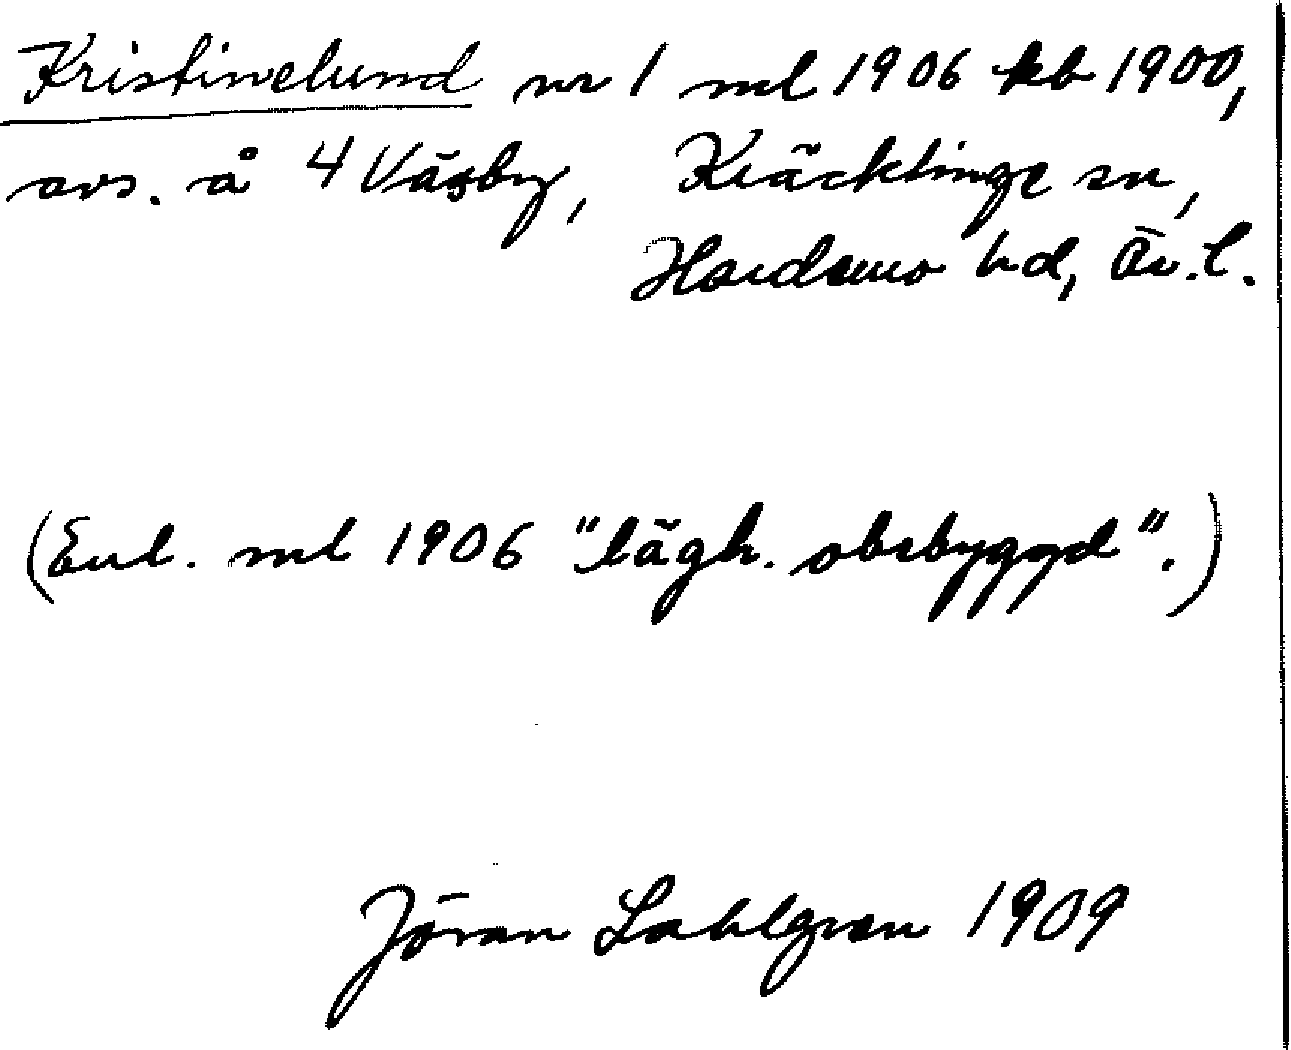 Kristinelund nr 1 ml 1906 kb 1900,
avs. å 4 Väsby, Kräcklinge sn,
Hardemo hd, Ör. l.
(Enl. ml 1906 "lägh. obebyggd".)
Jöran Sahlgren 1909